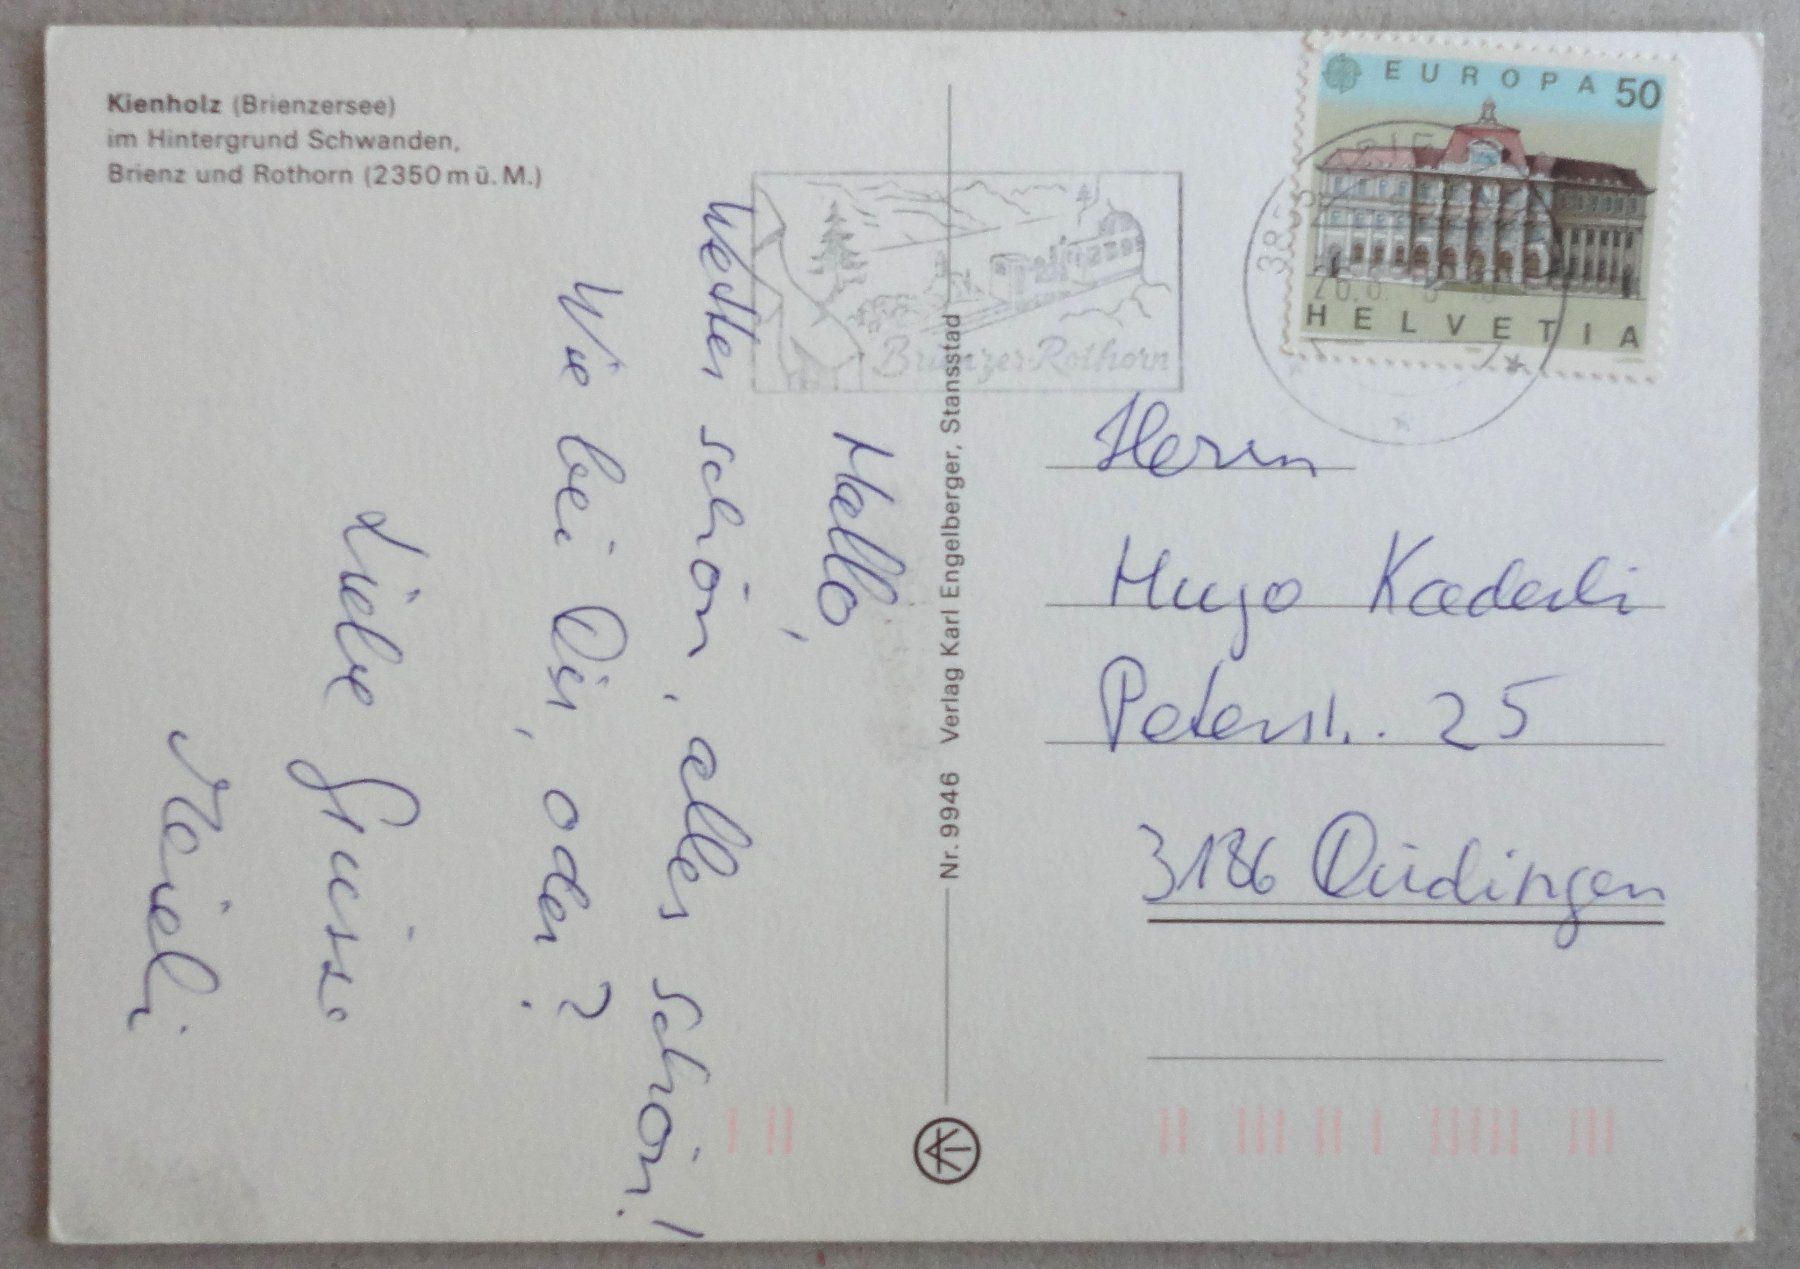 Kienholz (Brienzersee)
im Hintergrund Schwanden,
Brienz und Rothorn (2350 m ü. M.)
Hallo,
Wetter schön, alles schön!
Wie bei Dir, oder?
Liebe Grüsse
Meieli
Nr. 9946 Verlag Karl Engelberger, Stansstad
Brienzer-Rothorn
EUROPA 50
HELVETIA
Herrn
Hugo Kaderli
Peterstr. 25
3186 Düdingen